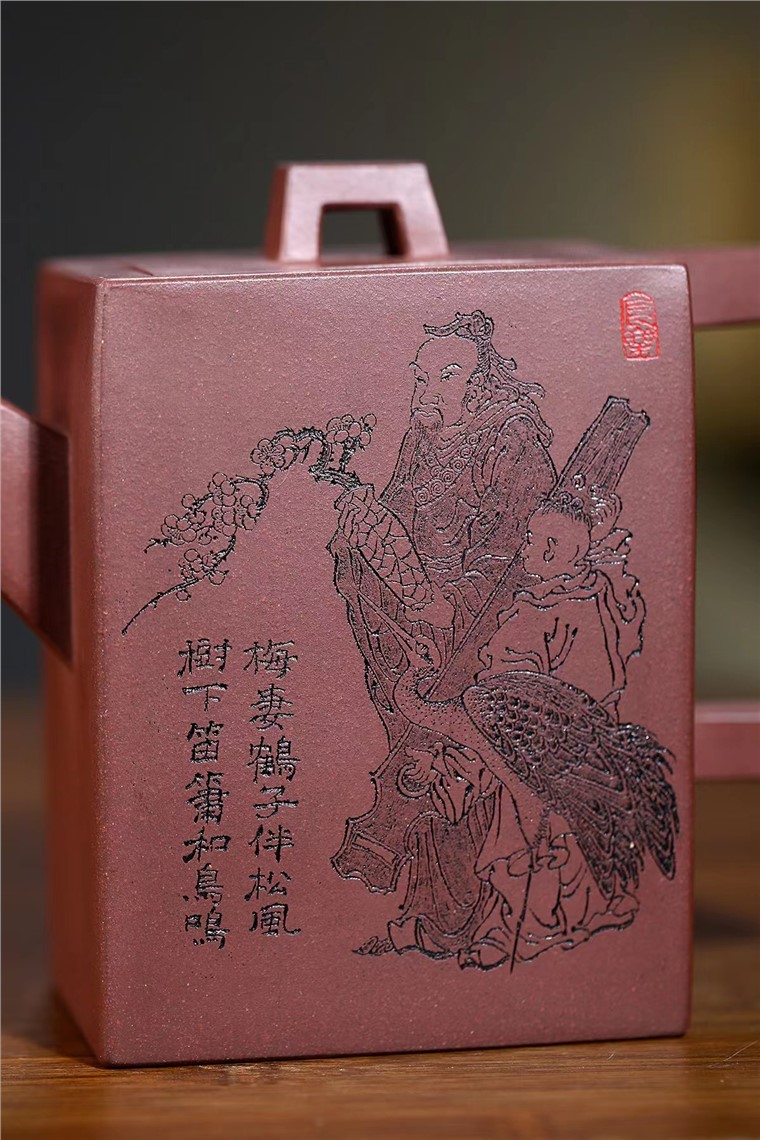 梅妻鶴子伴松風
樹下笛簫和鳥鳴